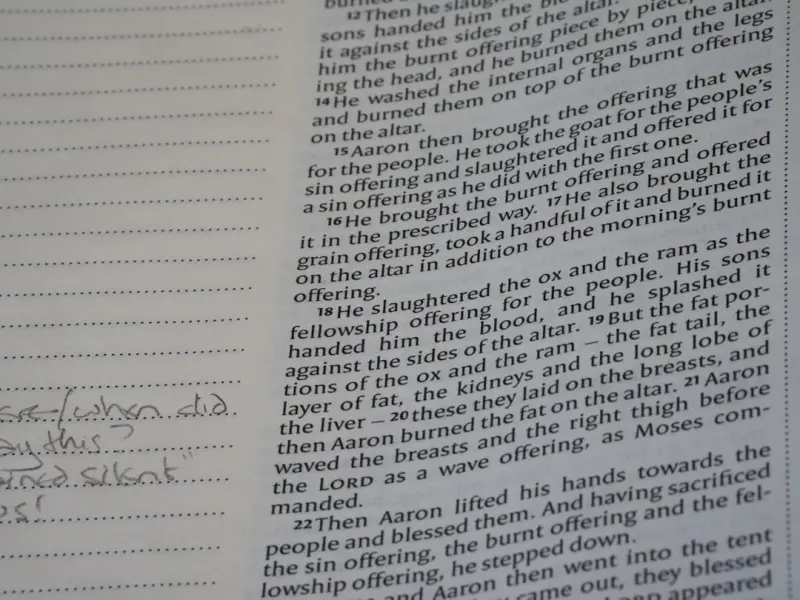 12 Then he slaug
sons handed him the blo
it against the sides of the altar.
him the burnt offering piece by piece,
ing the head, and he burned them on the altar.
14 He washed the internal organs and the legs
and burned them on top of the burnt offering
on the altar.
15 Aaron then brought the offering that was
for the people. He took the goat for the people's
sin offering and slaughtered it and offered it for
a sin offering as he did with the first one.
16 He brought the burnt offering and offered
it in the prescribed way. 17 He also brought the
grain offering, took a handful of it and burned it
on the altar in addition to the morning's burnt
offering.
18 He slaughtered the ox and the ram as the
fellowship offering for the people. His sons
handed him the blood, and he splashed it
against the sides of the altar. 19 But the fat por-
tions of the ox and the ram – the fat tail, the
layer of fat, the kidneys and the long lobe of
the liver – 20 these they laid on the breasts, and
then Aaron burned the fat on the altar. 21 Aaron
waved the breasts and the right thigh before
the LORD as a wave offering, as Moses com-
manded.
22 Then Aaron lifted his hands towards the
people and blessed them. And having sacrificed
the sin offering, the burnt offering and the fel-
lowship offering, he stepped down.
and Aaron then went into the tent
came out, they blessed
appeared
/when did
this?
silent"